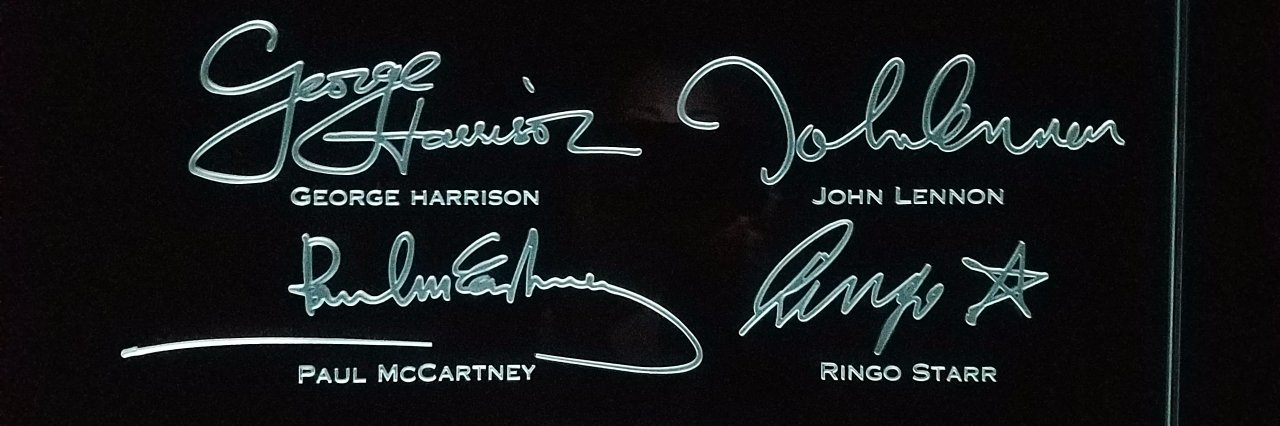 George Harrison
John Lennon
GEORGE HARRISON
JOHN LENNON
Paul McCartney
Ringo
PAUL MCCARTNEY
RINGO STARR